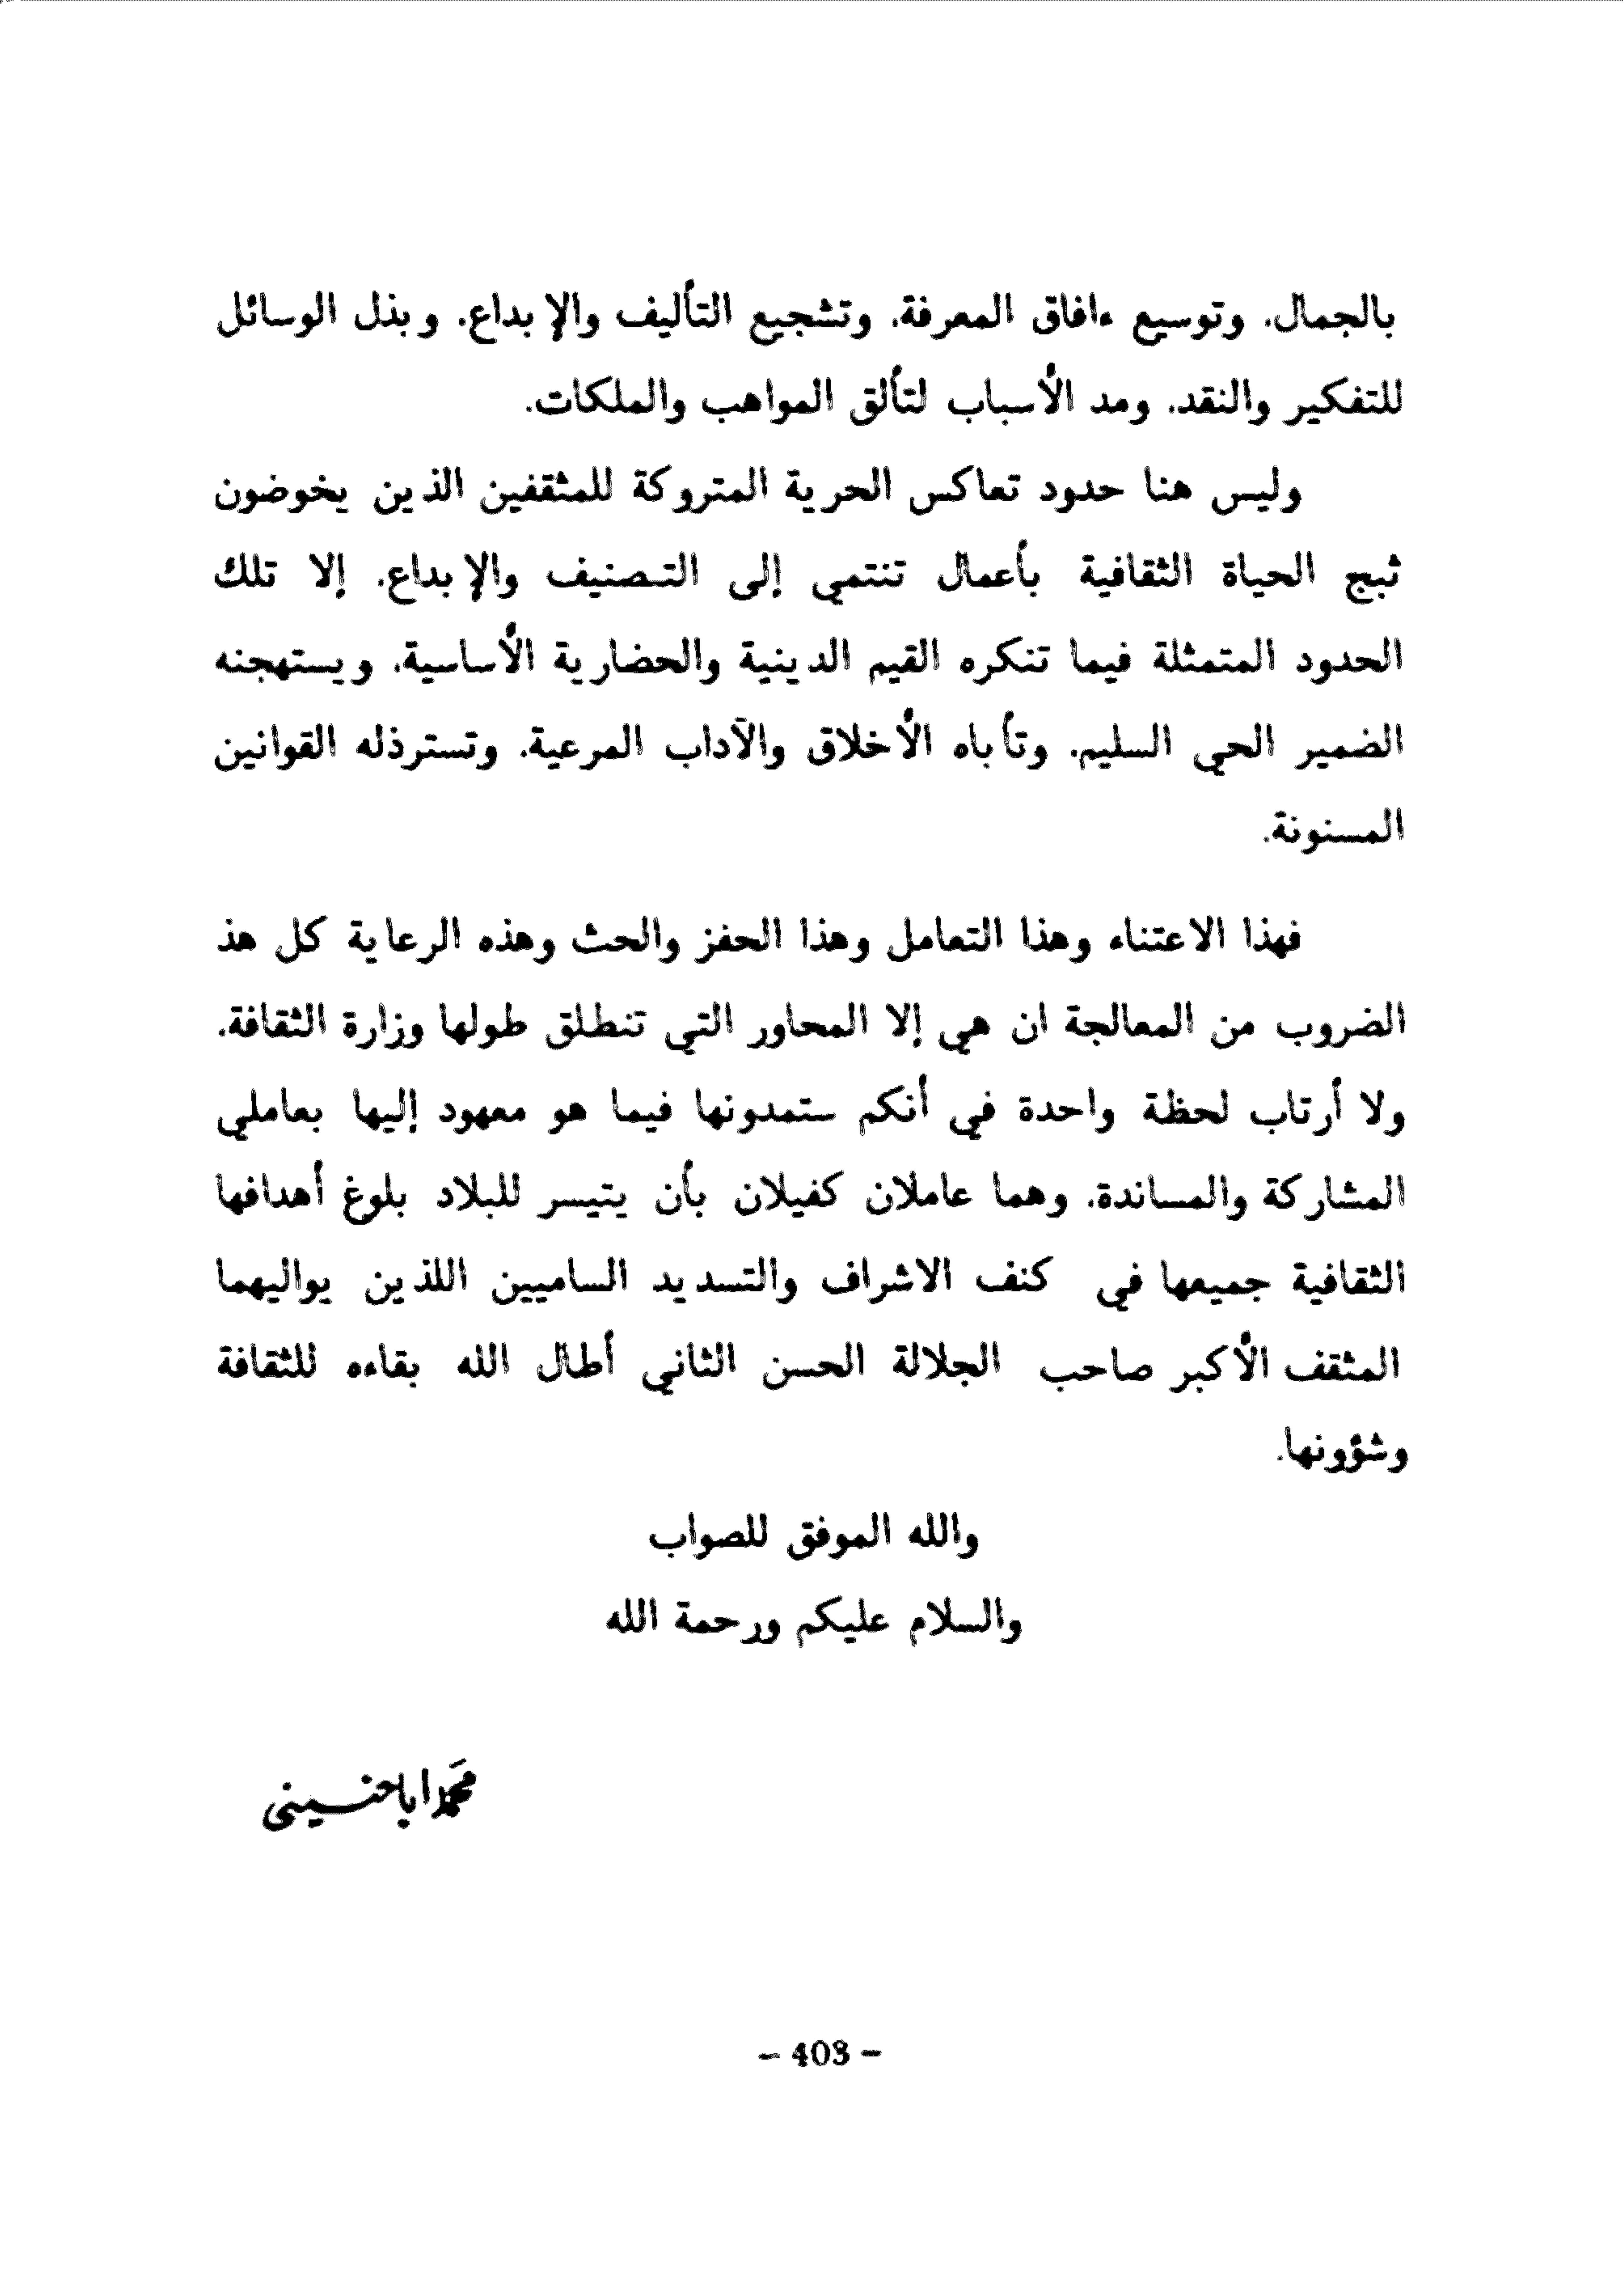 بالجمال. وتوسيع ءافاق المعرفة. وتشجيع التأليف والإبداع. وبذل الوسائل
للتفكير والنقد. ومد الأسباب لتألق المواهب والملكات.
وليس هنا حدود تعاكس الحرية المتروكة للمثقفين الذين يخوضون
ثبج الحياة الثقافية بأعمال تنتمي إلى التصنيف والإبداع. إلا تلك
الحدود المتمثلة فيما تنكره القيم الدينية والحضارية الأساسية. ويستهجنه
الضمير الحي السليم. وتأباه الأخلاق والآداب المرعية. وتسترذله القوانين
المسنونة.
فهذا الاعتناء وهذا التعامل وهذا الحفز والحث وهذه الرعاية كل هذ
الضروب من المعالجة ان هي إلا المحاور التي تنطلق طولها وزارة الثقافة.
ولا أرتاب لحظة واحدة في أنكم ستمدونها فيما هو معهود إليها بعاملي
المشاركة والمساندة. وهما عاملان كفيلان بأن يتيسر للبلاد بلوغ أهدافها
الثقافية جميعها في كنف الاشراف والتسديد الساميين اللذين يواليهما
المثقف الأكبر صاحب الجلالة الحسن الثاني أطال الله بقاءه للثقافة
وشؤونها.
والله الموفق للصواب
والسلام عليكم ورحمة الله
محمد اباحنيني
- 403 -